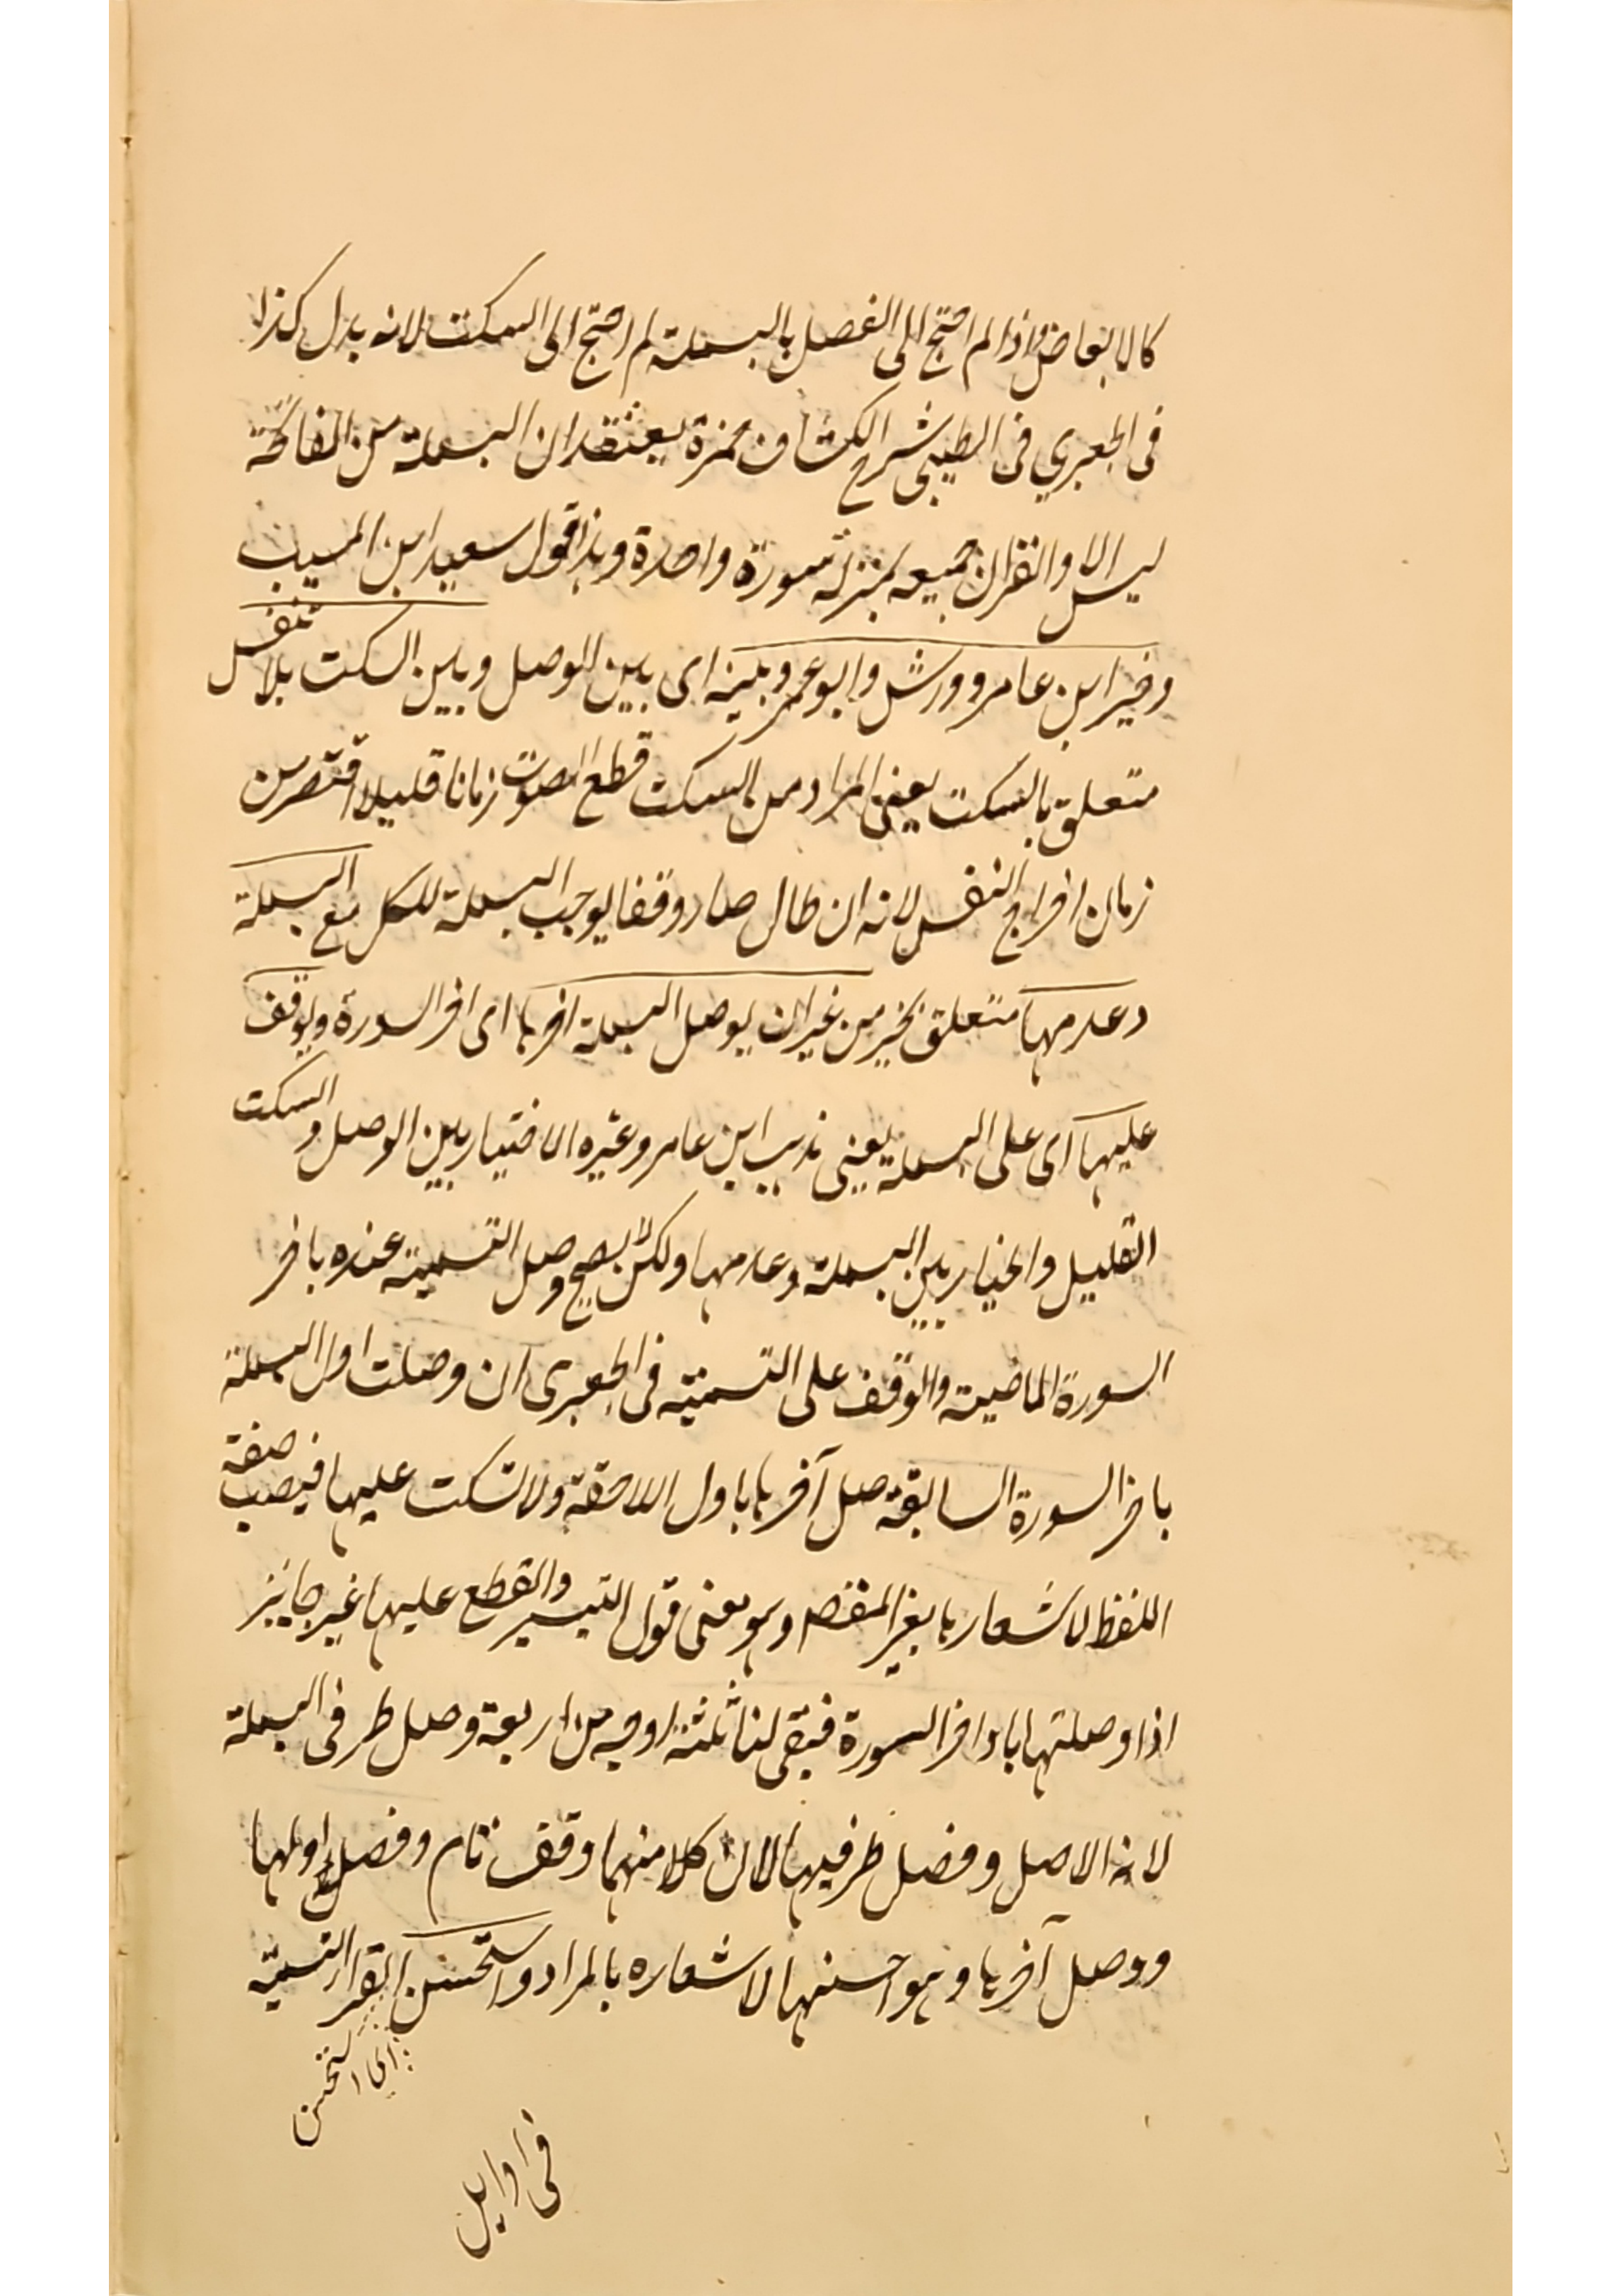 كالابعاض واذا لم احتج الى الفصل بالبسملة لم احتج الى السكت لانه بدل كذا
فى الجعبري فى الطيبى شرح الكشاف حمزة يعتقد ان البسملة من الفاتحة
ليس الا والقران جميعه بمنزلة سورة واحدة وهذا قول سعيد ابن المسيب
وخير ابن عامر وورش وابو عمرو بينه اى بين الوصل وبين السكت بلا تنفس
متعلق بالسكت يعنى المراد من السكت قطع الصوت زمانا قليلا اقصر من
زمان اخراج النفس لانه ان طال صار وقفا يوجب البسملة للكل مع البسملة
وعدمها متعلق بخير من غير ان يوصل البسملة اخرها اى اخر السورة ويوقف
عليها اى على البسملة يعنى مذهب ابن عامر وغيره الاختيار بين الوصل والسكت
القليل والخيار بين البسملة وعدمها ولكن لا يصح وصل التسمية عنده باخر
السورة الماضية والوقف على التسمية فى الجعبرى ان وصلت اول البسملة
باخر السورة السابقة صل آخرها باول اللاحقة ولا تسكت عليها فيصب صفة
اللفظ لاشعارها بغير المقصد وهو معنى قول التيسير والقطع عليها غير جايز
اذا وصلتها باواخر السورة فبقى لنا ثلثة اوجه من اربعة وصل طرفى البسملة
لانه الاصل وفصل طرفيها لان كلا منهما وقف تام وفصل اولها
ووصل آخرها وهو احسنها لاشعاره بالمراد واستحسن القرا التسمية
اى استحسن
فى اوايل